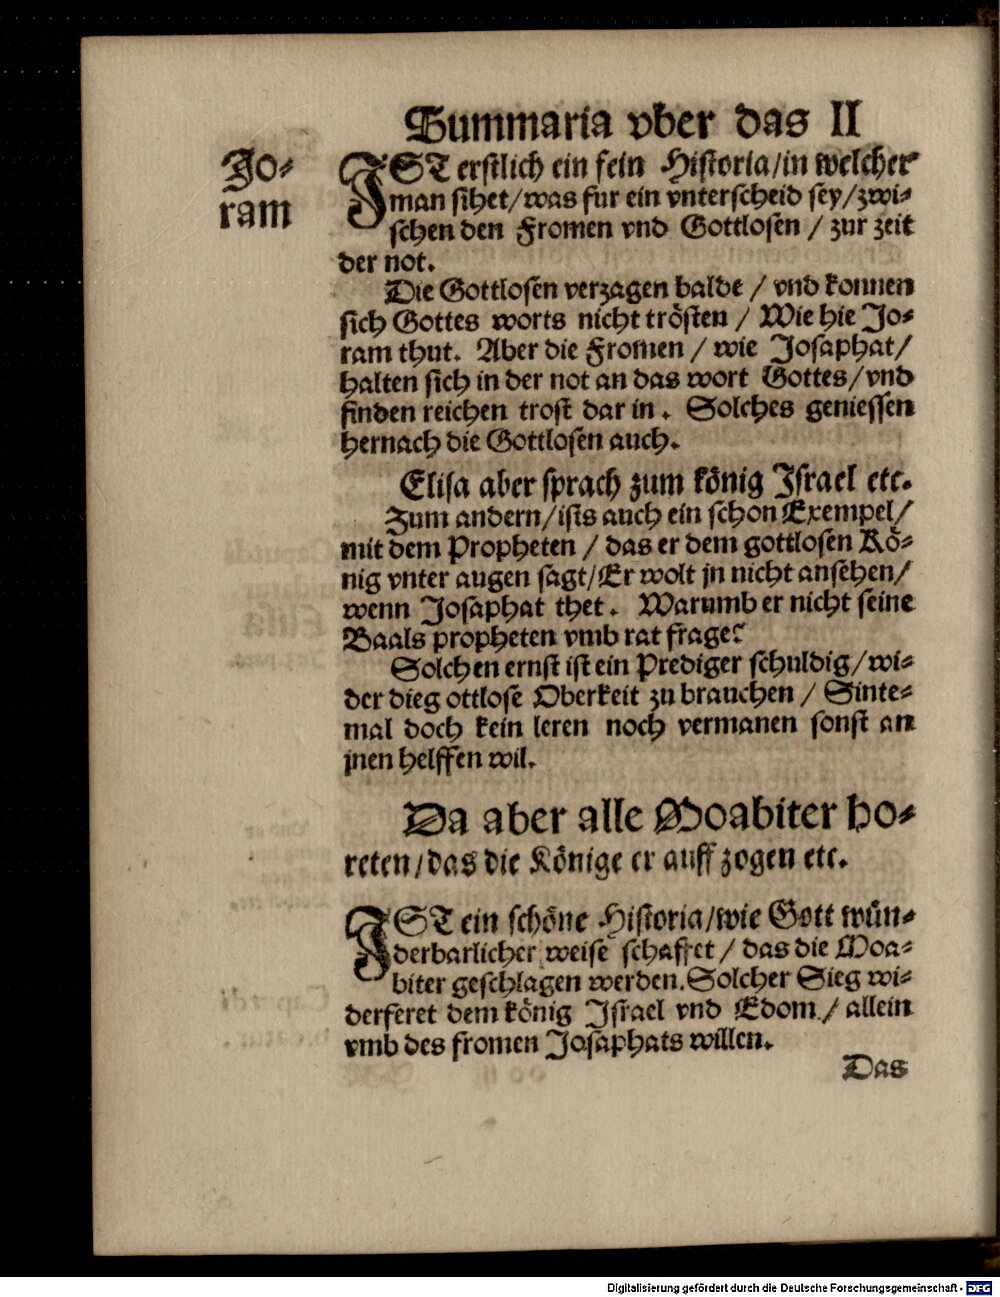 Summaria vber das II
Jo-
ram
JST erstlich ein fein Historia/in welcher
man sihet/was fur ein vnterscheid sey/zwi-
schen den Fromen vnd Gottlosen / zur zeit
der not.
Die Gottlosen verzagen balde / vnd konnen
sich Gottes worts nicht trösten / Wie hie Jo-
ram thut. Aber die Fromen / wie Josaphat/
halten sich in der not an das wort Gottes/vnd
finden reichen trost dar in. Solches geniessen
hernach die Gottlosen auch.
Elisa aber sprach zum könig Israel etc.
Zum andern/ists auch ein schon Exempel/
mit dem Propheten / das er dem gottlosen Kö-
nig vnter augen sagt/Er wolt jn nicht ansehen/
wenn Josaphat thet. Warumb er nicht seine
Baals propheten vmb rat frage?
Solchen ernst ist ein Prediger schuldig/wi-
der dieg ottlose Oberkeit zu brauchen / Sinte-
mal doch kein leren noch vermanen sonst an
jnen helffen wil.
Da aber alle Moabiter ho-
reten/das die Könige er auff zogen etc.
JST ein schöne Historia/wie Gott wün-
derbarlicher weise schaffet / das die Moa-
biter geschlagen werden. Solcher Sieg wi-
derferet dem könig Israel vnd Edom / allein
vmb des fromen Josaphats willen.
Das
Digitalisierung gefördert durch die Deutsche Forschungsgemeinschaft - DFG